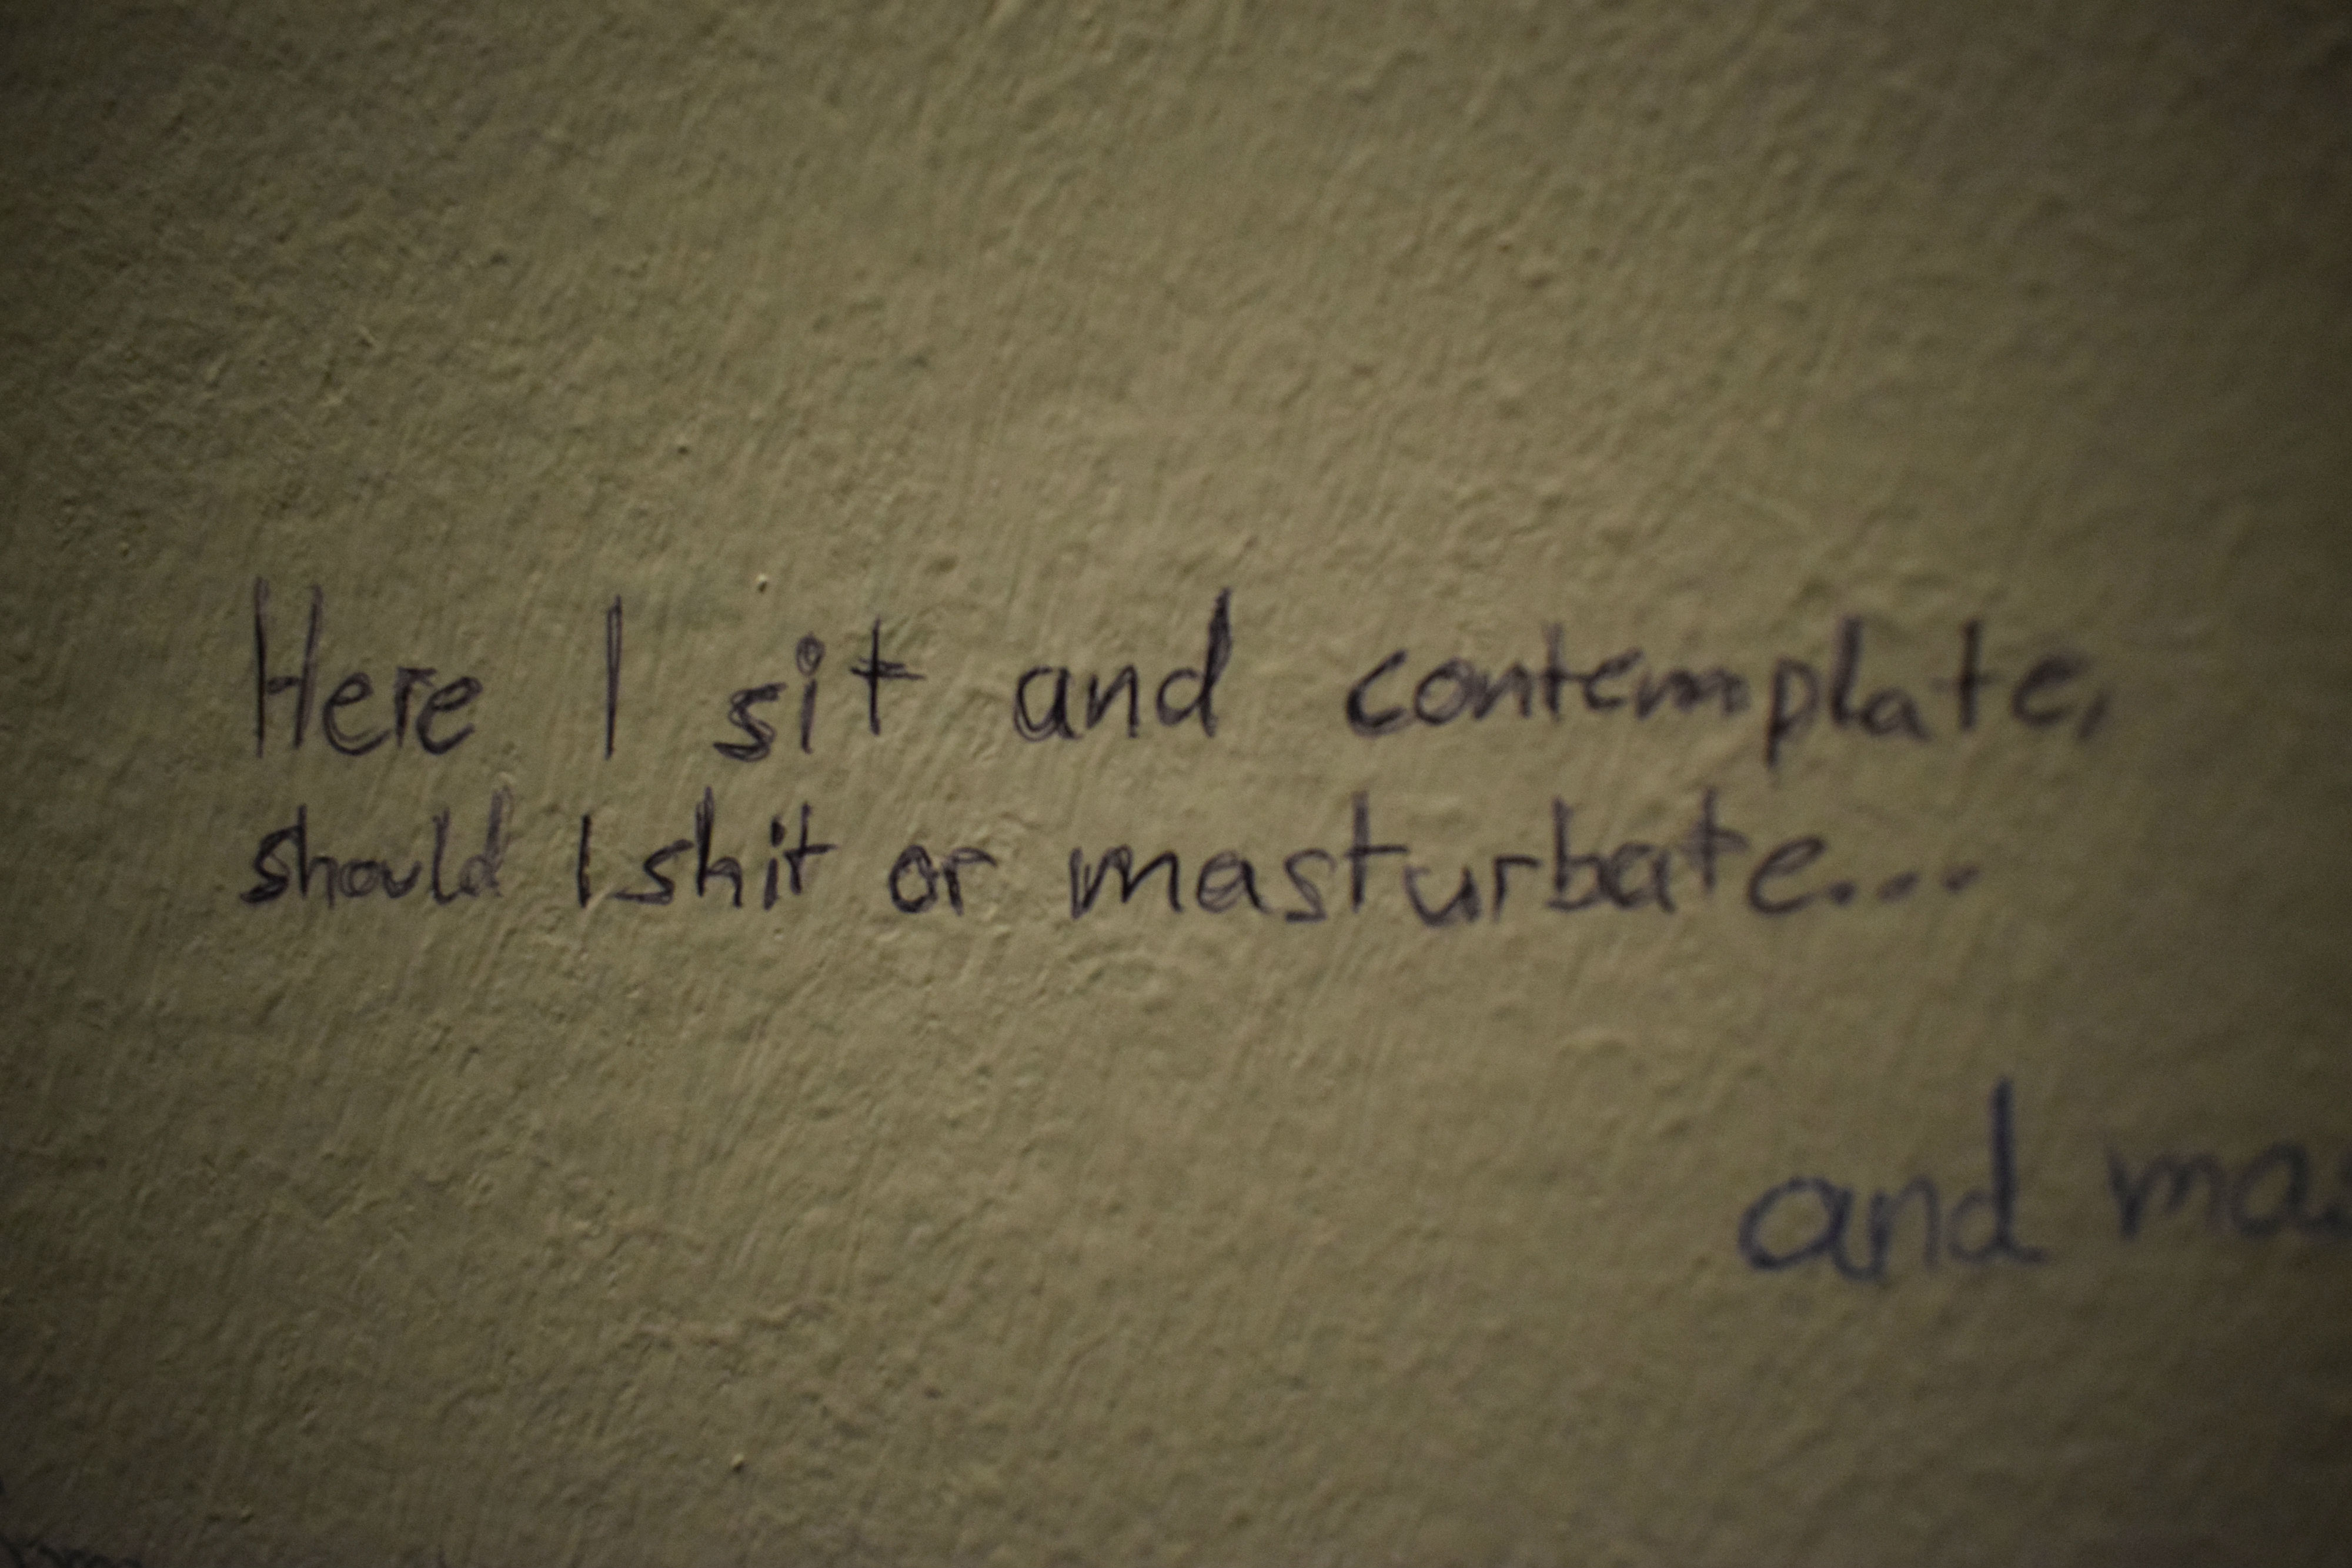 Here I sit and contemplate,
should I shit or masturbate...
and